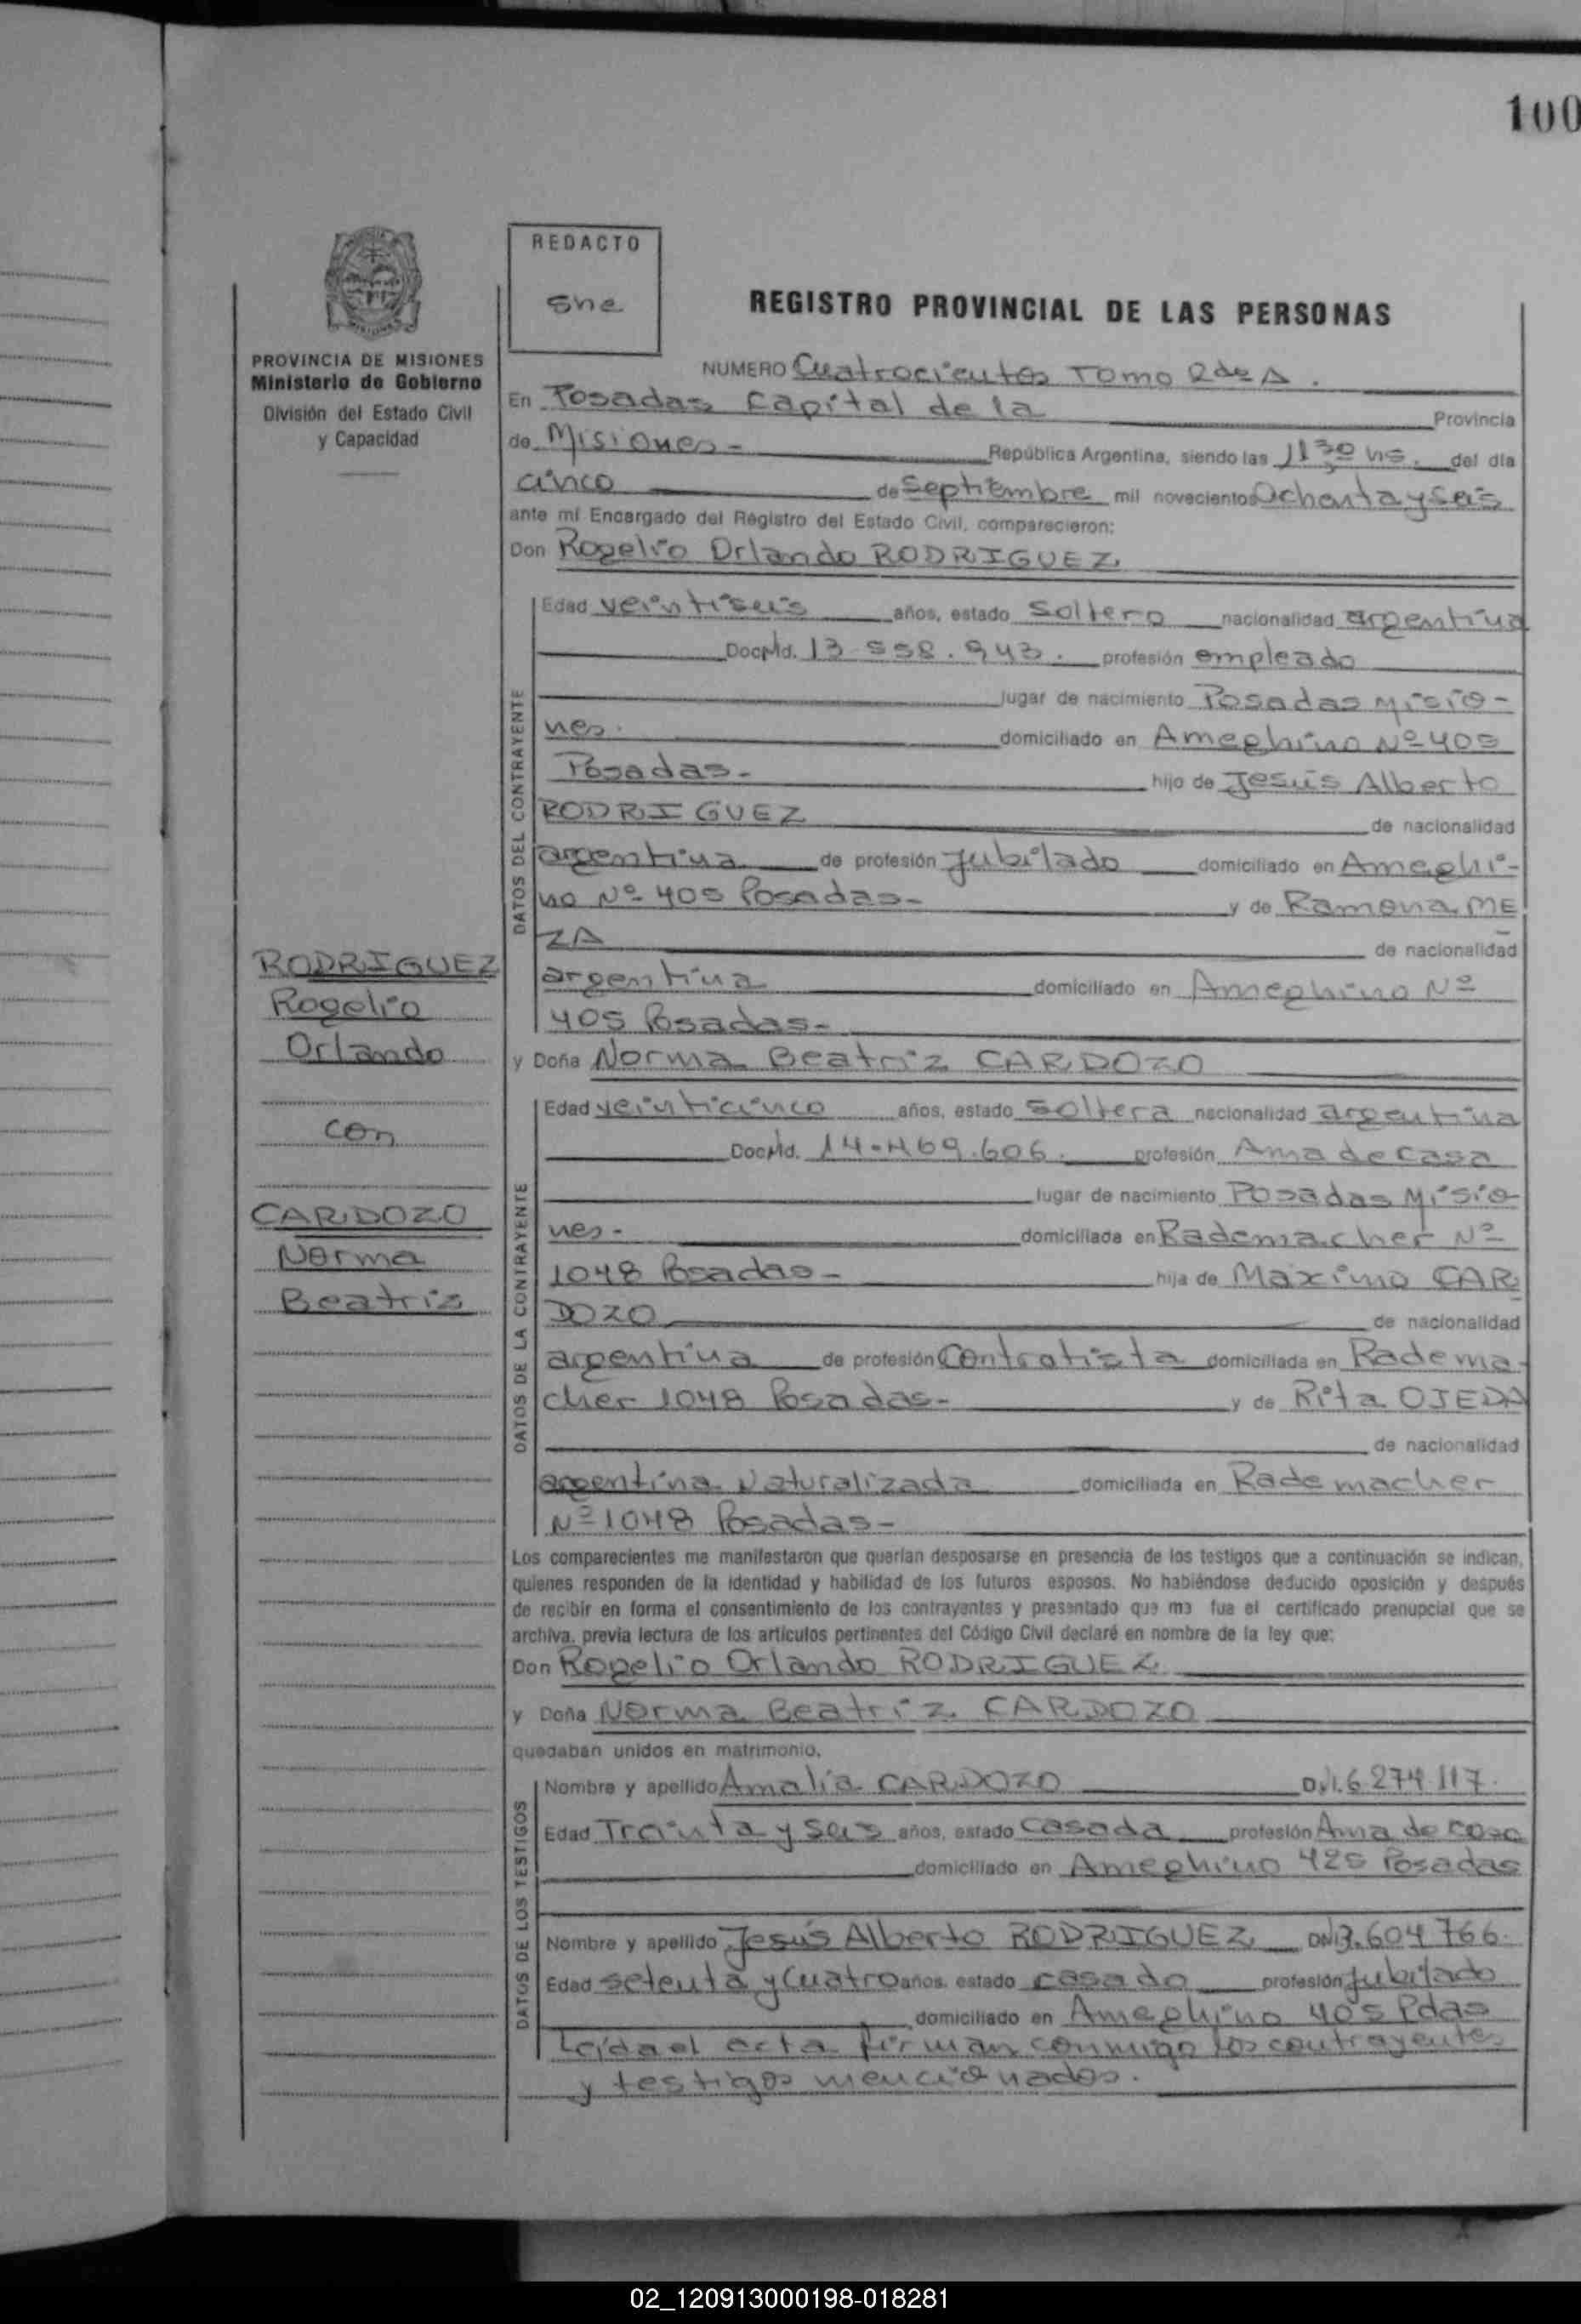 100
REDACTO
sne
REGISTRO PROVINCIAL DE LAS PERSONAS
PROVINCIA DE MISIONES
Ministerio de Gobierno
División del Estado Civil
y Capacidad
NUMERO Cuatrocientos Tomo 2do A.
En Posadas Capital de la Provincia
de Misiones- República Argentina, siendo las 11 30 hs. del día
cinco de Septiembre mil novecientos Ochenta y seis
ante mí Encargado del Registro del Estado Civil, comparecieron:
Don Rogelio Orlando RODRIGUEZ
Edad veintiseis años, estado Soltero nacionalidad argentina
Doc. Nd. 13.558.943. profesión empleado
lugar de nacimiento Posadas Misio-
nes. domiciliado en Ameghino Nº 405
Posadas- hijo de Jesús Alberto
RODRIGUEZ de nacionalidad
argentina de profesión Jubilado domiciliado en Ameghi-
no Nº 405 Posadas- y de Ramona ME
ZA de nacionalidad
argentina domiciliado en Ameghino Nº
405 Posadas-
y Doña Norma Beatriz CARDOZO
Edad veinticinco años, estado Soltera nacionalidad argentina
Doc. Nd. 14.469.606. profesión Ama de casa
lugar de nacimiento Posadas Misio
nes- domiciliada en Rademacher Nº
1048 Posadas- hija de Maximo CAR
DOZO de nacionalidad
argentina de profesión Contratista domiciliada en Radema-
cher 1048 Posadas- y de Rita OJEDA
de nacionalidad
argentina Naturalizada domiciliada en Rademacher
Nº 1048 Posadas-
DATOS DEL CONTRAYENTE
DATOS DE LA CONTRAYENTE
RODRIGUEZ
Rogelio
Orlando
con
CARDOZO
Norma
Beatriz
Los comparecientes me manifestaron que querían desposarse en presencia de los testigos que a continuación se indican,
quienes responden de la identidad y habilidad de los futuros esposos. No habiéndose deducido oposición y después
de recibir en forma el consentimiento de los contrayentes y presentado que me fue el certificado prenupcial que se
archiva, previa lectura de los artículos pertinentes del Código Civil declaré en nombre de la ley que:
Don Rogelio Orlando RODRIGUEZ
y Doña Norma Beatriz CARDOZO
quedaban unidos en matrimonio.
Nombre y apellido Amalia CARDOZO D.N.I. 6.274.117.
Edad Treinta y seis años, estado casada profesión Ama de casa
domiciliado en Ameghino 425 Posadas
Nombre y apellido Jesús Alberto RODRIGUEZ DNI 3.604.766.
Edad setenta y cuatro años, estado casado profesión Jubilado
domiciliado en Ameghino 405 Pdas
DATOS DE LOS TESTIGOS
Leída el acta firman conmigo los contrayentes
y testigos mencionados.
02_120913000198-018281